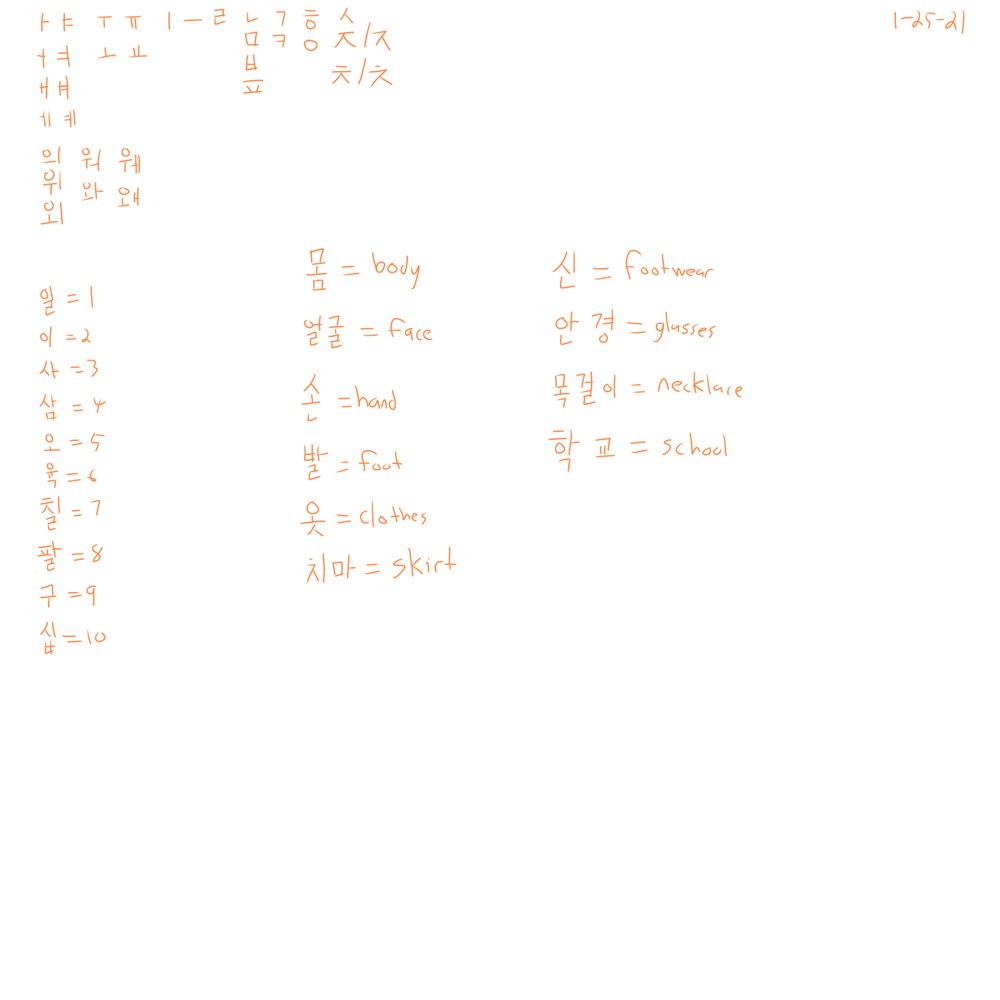 ㅏ ㅑ ㅜ ㅠ ㅣ ㅡ ㄹ ㄴ ㄱ ㅎ ㅅ 1-25-21
ㅓ ㅕ ㅗ ㅛ ㅁ ㅋ ㅇ ㅈ/ㅈ
ㅐ ㅒ ㅂ ㅊ/ㅊ
ㅔ ㅖ ㅍ
의 워 웨
위 와 왜
외
일 = 1
이 = 2
사 = 3
삼 = 4
오 = 5
육 = 6
칠 = 7
팔 = 8
구 = 9
십 = 10
몸 = body
얼굴 = face
손 = hand
발 = foot
옷 = clothes
치마 = skirt
신 = footwear
안경 = glasses
목걸이 = necklace
학교 = school